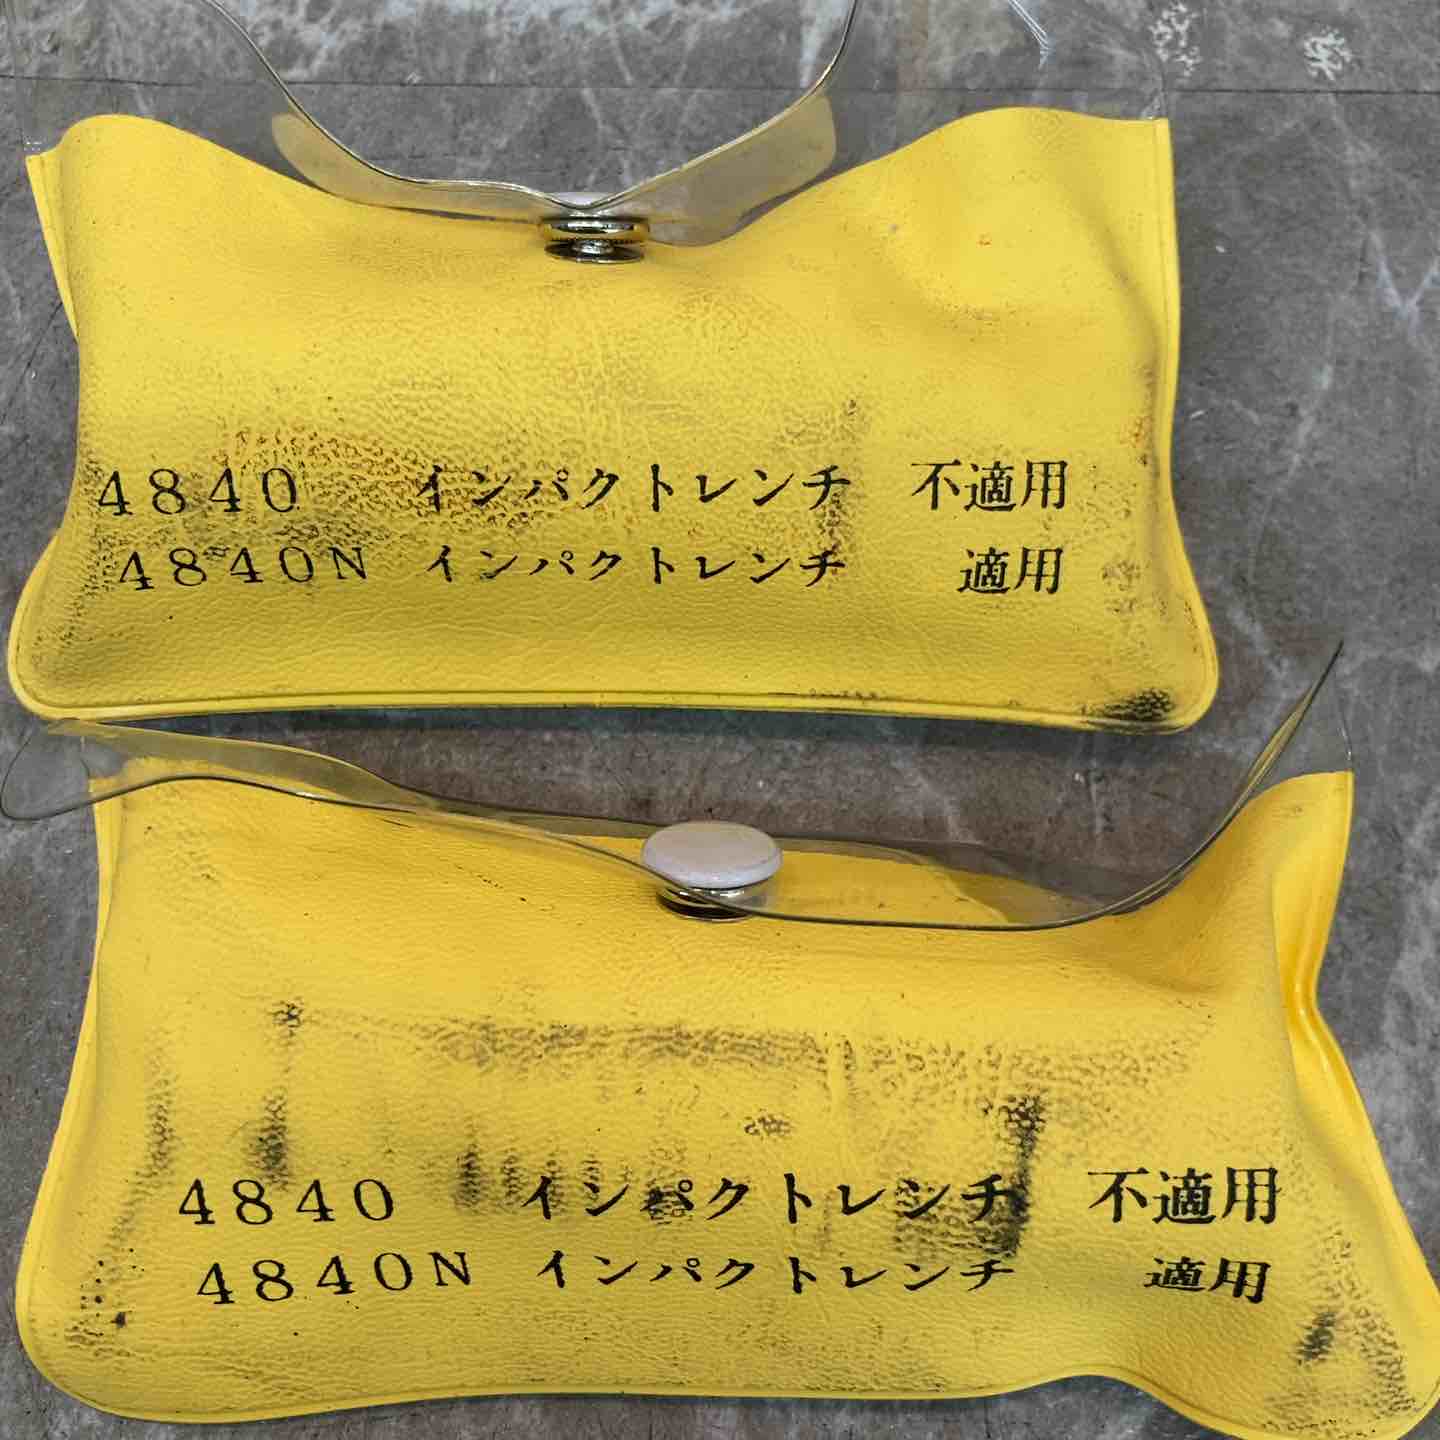 4840 インパクトレンチ 不適用
4840N インパクトレンチ 適用
4840 インパクトレンチ 不適用
4840N インパクトレンチ 適用